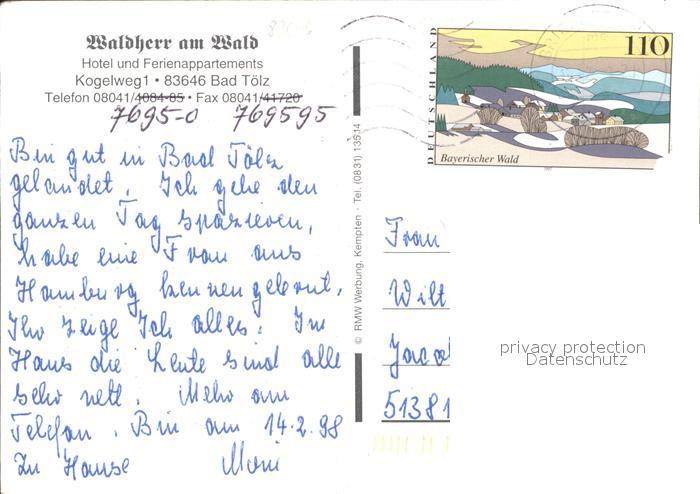 Waldherr am Wald
Hotel und Ferienappartements
Kogelweg1 • 83646 Bad Tölz
Telefon 08041/4084-85 • Fax 08041/41720
7695-0 769595
Bin gut in Bad Tölz
gelandet. Ich gehe den
ganzen Tag spazieren,
habe eine Frau aus
Hamburg kennengelernt,
Ihr zeige Ich alles. Im
Haus die Leute sind alle
sehr nett. Mehr am
Telefon. Bin am 14.2.98
Zu Hause Moni
© RMW Werbung, Kempten - Tel. (0831) 13514
DEUTSCHLAND
110
Bayerischer Wald
Frau
Wilt
Jaco
51381
privacy protection
Datenschutz